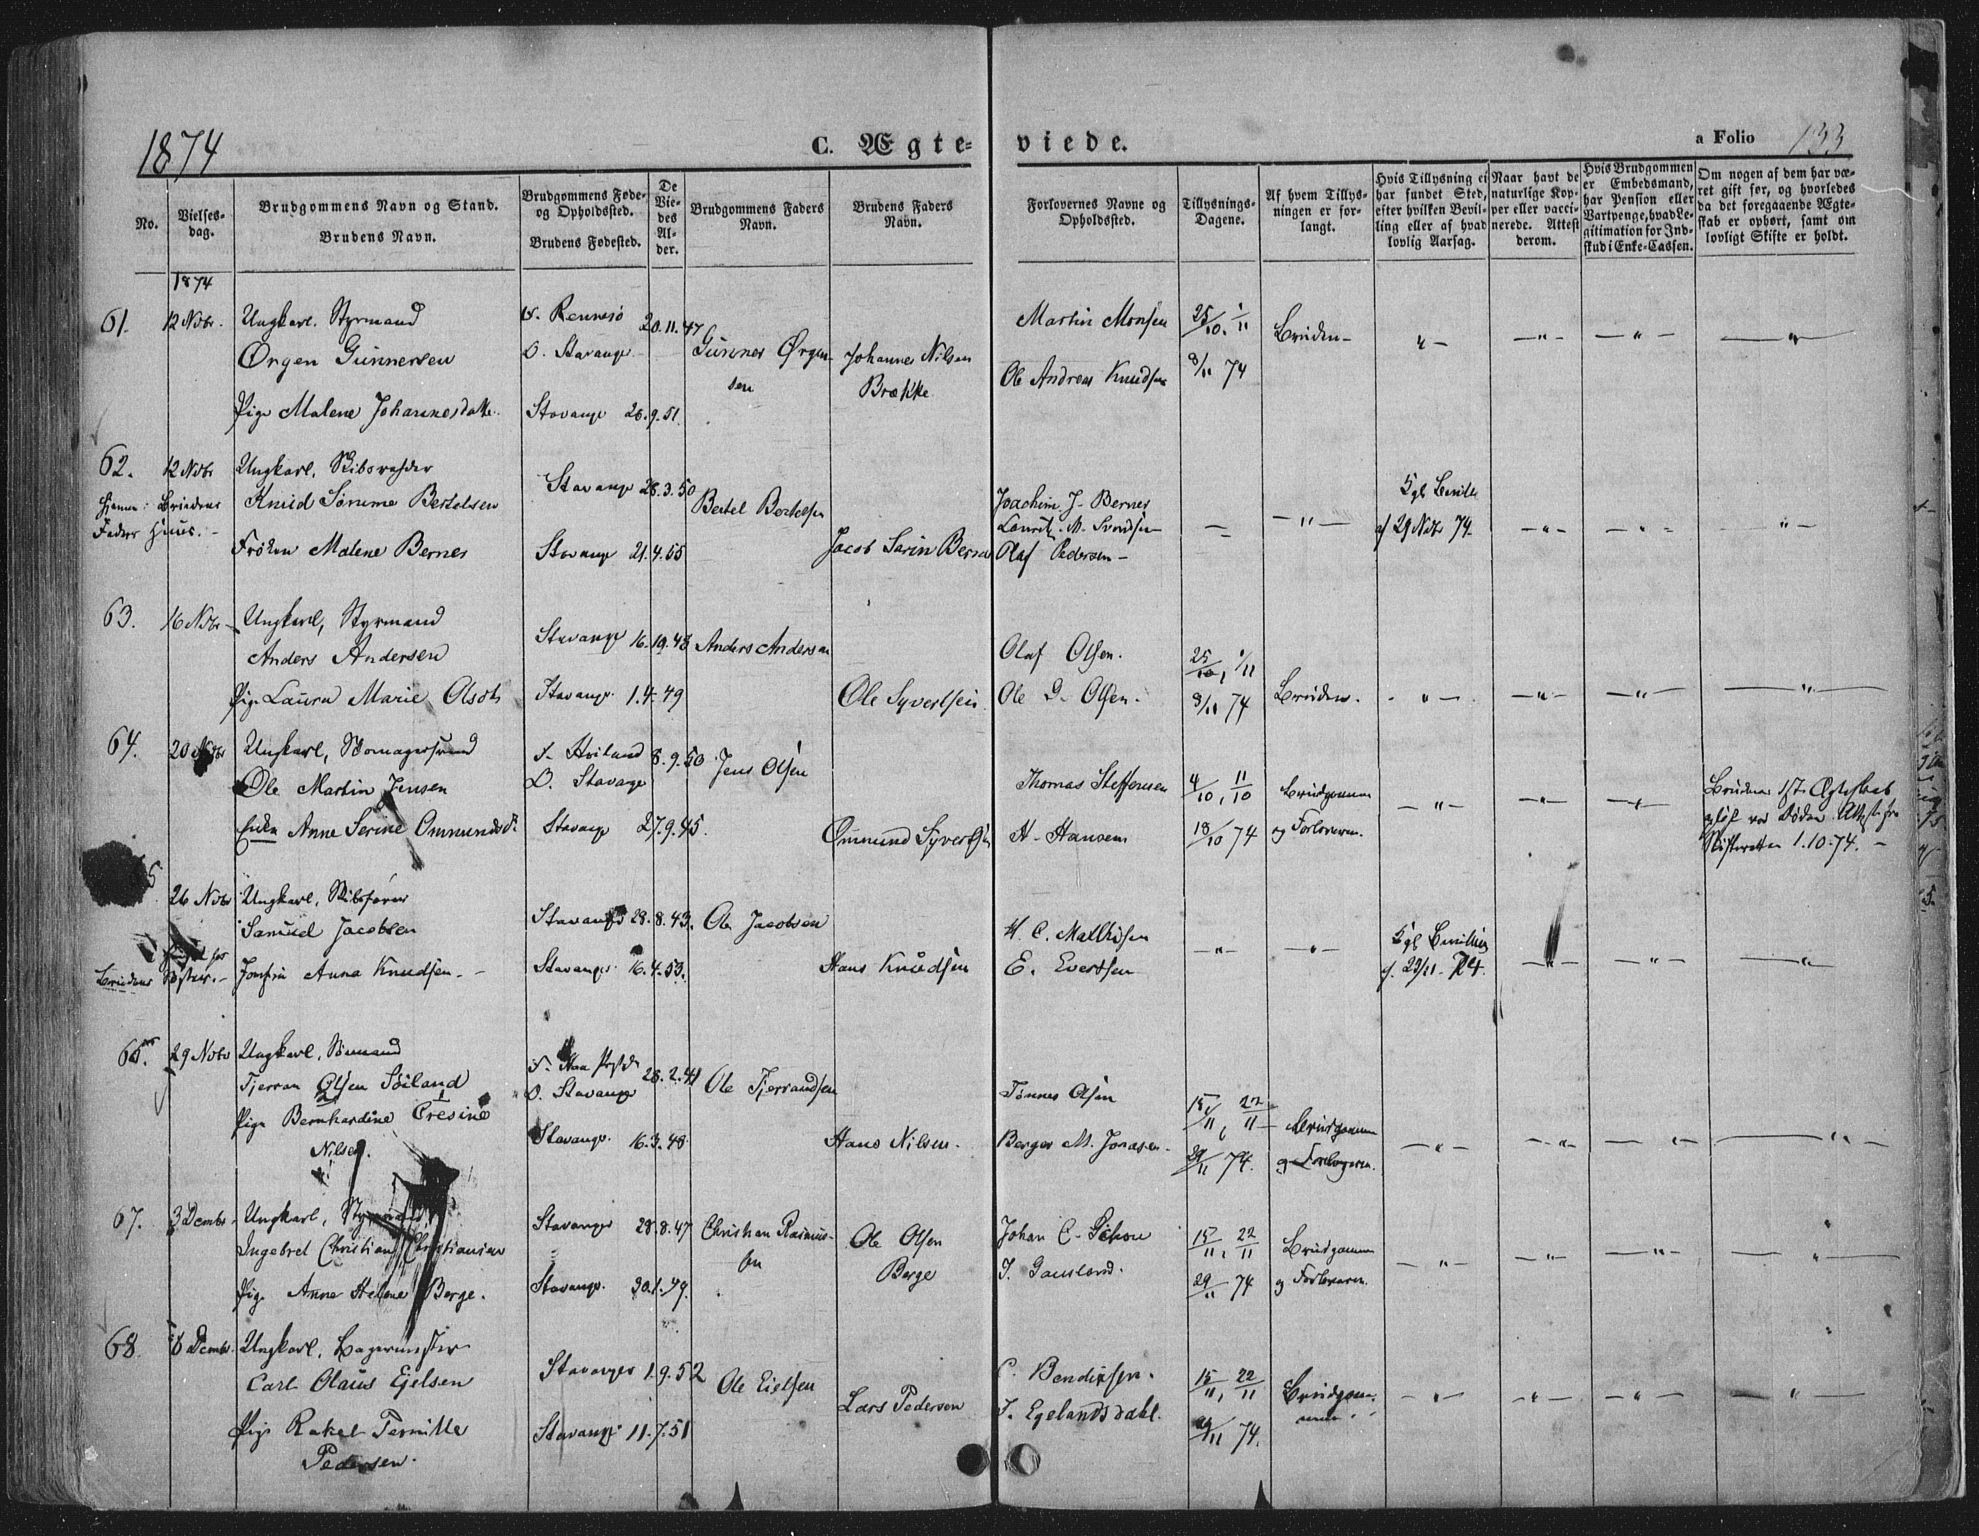 1874
C. Ægteviede.
a Folio 133
No.
Vielsesdag.
Brudgommens Navn og Stand.
Brudens Navn.
Brudgommens Føde- og Opholdssted.
Brudens Fødested.
De Viedes Alder.
Brudgommens Faders Navn.
Brudens Faders Navn.
Forlovernes Navne og Opholdssted.
Tillysnings-Dagene.
Af hvem Tillysningen er forlangt.
Hvis Tillysning ei har fundet Sted, efter hvilken Bevilling eller af hvad lovlig Aarsag.
Naar havt de naturlige Kopper eller vaccinerede. Attest derom.
Hvis Brudgommen er Embedsmand, har Pension eller Vartpenge, hvad Legitimation for Indskud i Enke-Cassen.
Om nogen af dem har været gift før, og hvorledes da det foregaaende Ægteskab er ophørt, samt om lovligt Skifte er holdt.
1874
61. 12 Nobr. Ungkarl. Styrmand F. Rennesø 20.11.47
Ørgen Gunnersen O. Stavange Gunner Ørgensen Johannes Nilsen Brække
Martin Monsen 25/10, 1/11 Bruden
Ole Andreas Knudsen 8/11 74
Pige Malene Johannesdatte. Stavange 26.9.51.
62. 12 Nobr Ungkarl, Skibsreder
Hjemme i Brudens Faders Huus.
Knud Sømme Bertelsen Stavange 28.3.50 Bertel Bertelsen
Frøken Malene Berner Stavange 21.4.55 Jacob Sarin Berner
Joachim J. Berner
Laurits M. Svendsen
Olaf Pedersen
Kgl Bevill.
af 29 Nobr 74.
63. 16 Nobr Ungkarl, Styrmand
Anders Andersen Stavange 16.10.48 Anders Andersen
Pige Laura Marie Olsdtr Stavange. 1.4.49 Ole Syvertsen
Olaf Olsen. 25/10, 1/11
Ole D. Olsen. 8/11 74 Bruden.
64. 20 Nobr Ungkarl, Skomagersvend
Ole Martin Jensen F. Hviland O. Stavange 8.9.50 Jens Olsen
Enke Anne Serine Ommundsdr Stavange 27.9.45. Ommund Syvertsen
Thomas Steffensen 4/10, 11/10 Brudgommen
H. Hansen 18/10 74 og Forloveren.
Brudens 1ste Ægteskab
opløst ved Døden. Attest fra
Skifteretten 1.10.74.
5
26 Nobr Ungkarl, Skibsfører
Samuel Jacobsen Stavanger 28.8.43. Ole Jacobsen
Brudens
Jomfru Anna Knudsen. Stavanger 16.4.53. Hans Knudsen
H. C. Malthisen
E. Evertsen
Kgl Bevilling
f. 22/11 74.
29 Nobr Ungkarl, Sømand
Tjerran Olsen Søiland O. Stavange 28.2.41 Ole Tjerrandsen
Pige Bernhardine Tresine Nilsen. Stavange. 16.3.48 Hans Nilsen.
Tønnes Olsen 15/11, 22/11 Brudgommen
Berger M. Jonasen. 29/11 74. og Forloveren.
67. 3 Dcmbr. Ungkarl, Styrmand
Ingebret Christian Christiansen Stavanger 28.8.47 Christian Rasmussen
Pige Anne Helene Berge. Stavange. 30.1.49. Ole Olsen Berge
Johan C. Schou 15/11, 22/11 Brudgommen
T. Gausland. 29/11 74 og Forloveren.
68. 6 Dcmbr. Ungkarl. Bagermester
Carl Olaus Ejelsen Stavanger 1.9.52 Ole Eielsen
Pige Rakel Pernille Pedersen. Stavange 11.7.51 Lars Pedersen
C. Bendixsen. 15/11, 22/11
T. Egelandsdahl. 29/11 74. Brudgommen